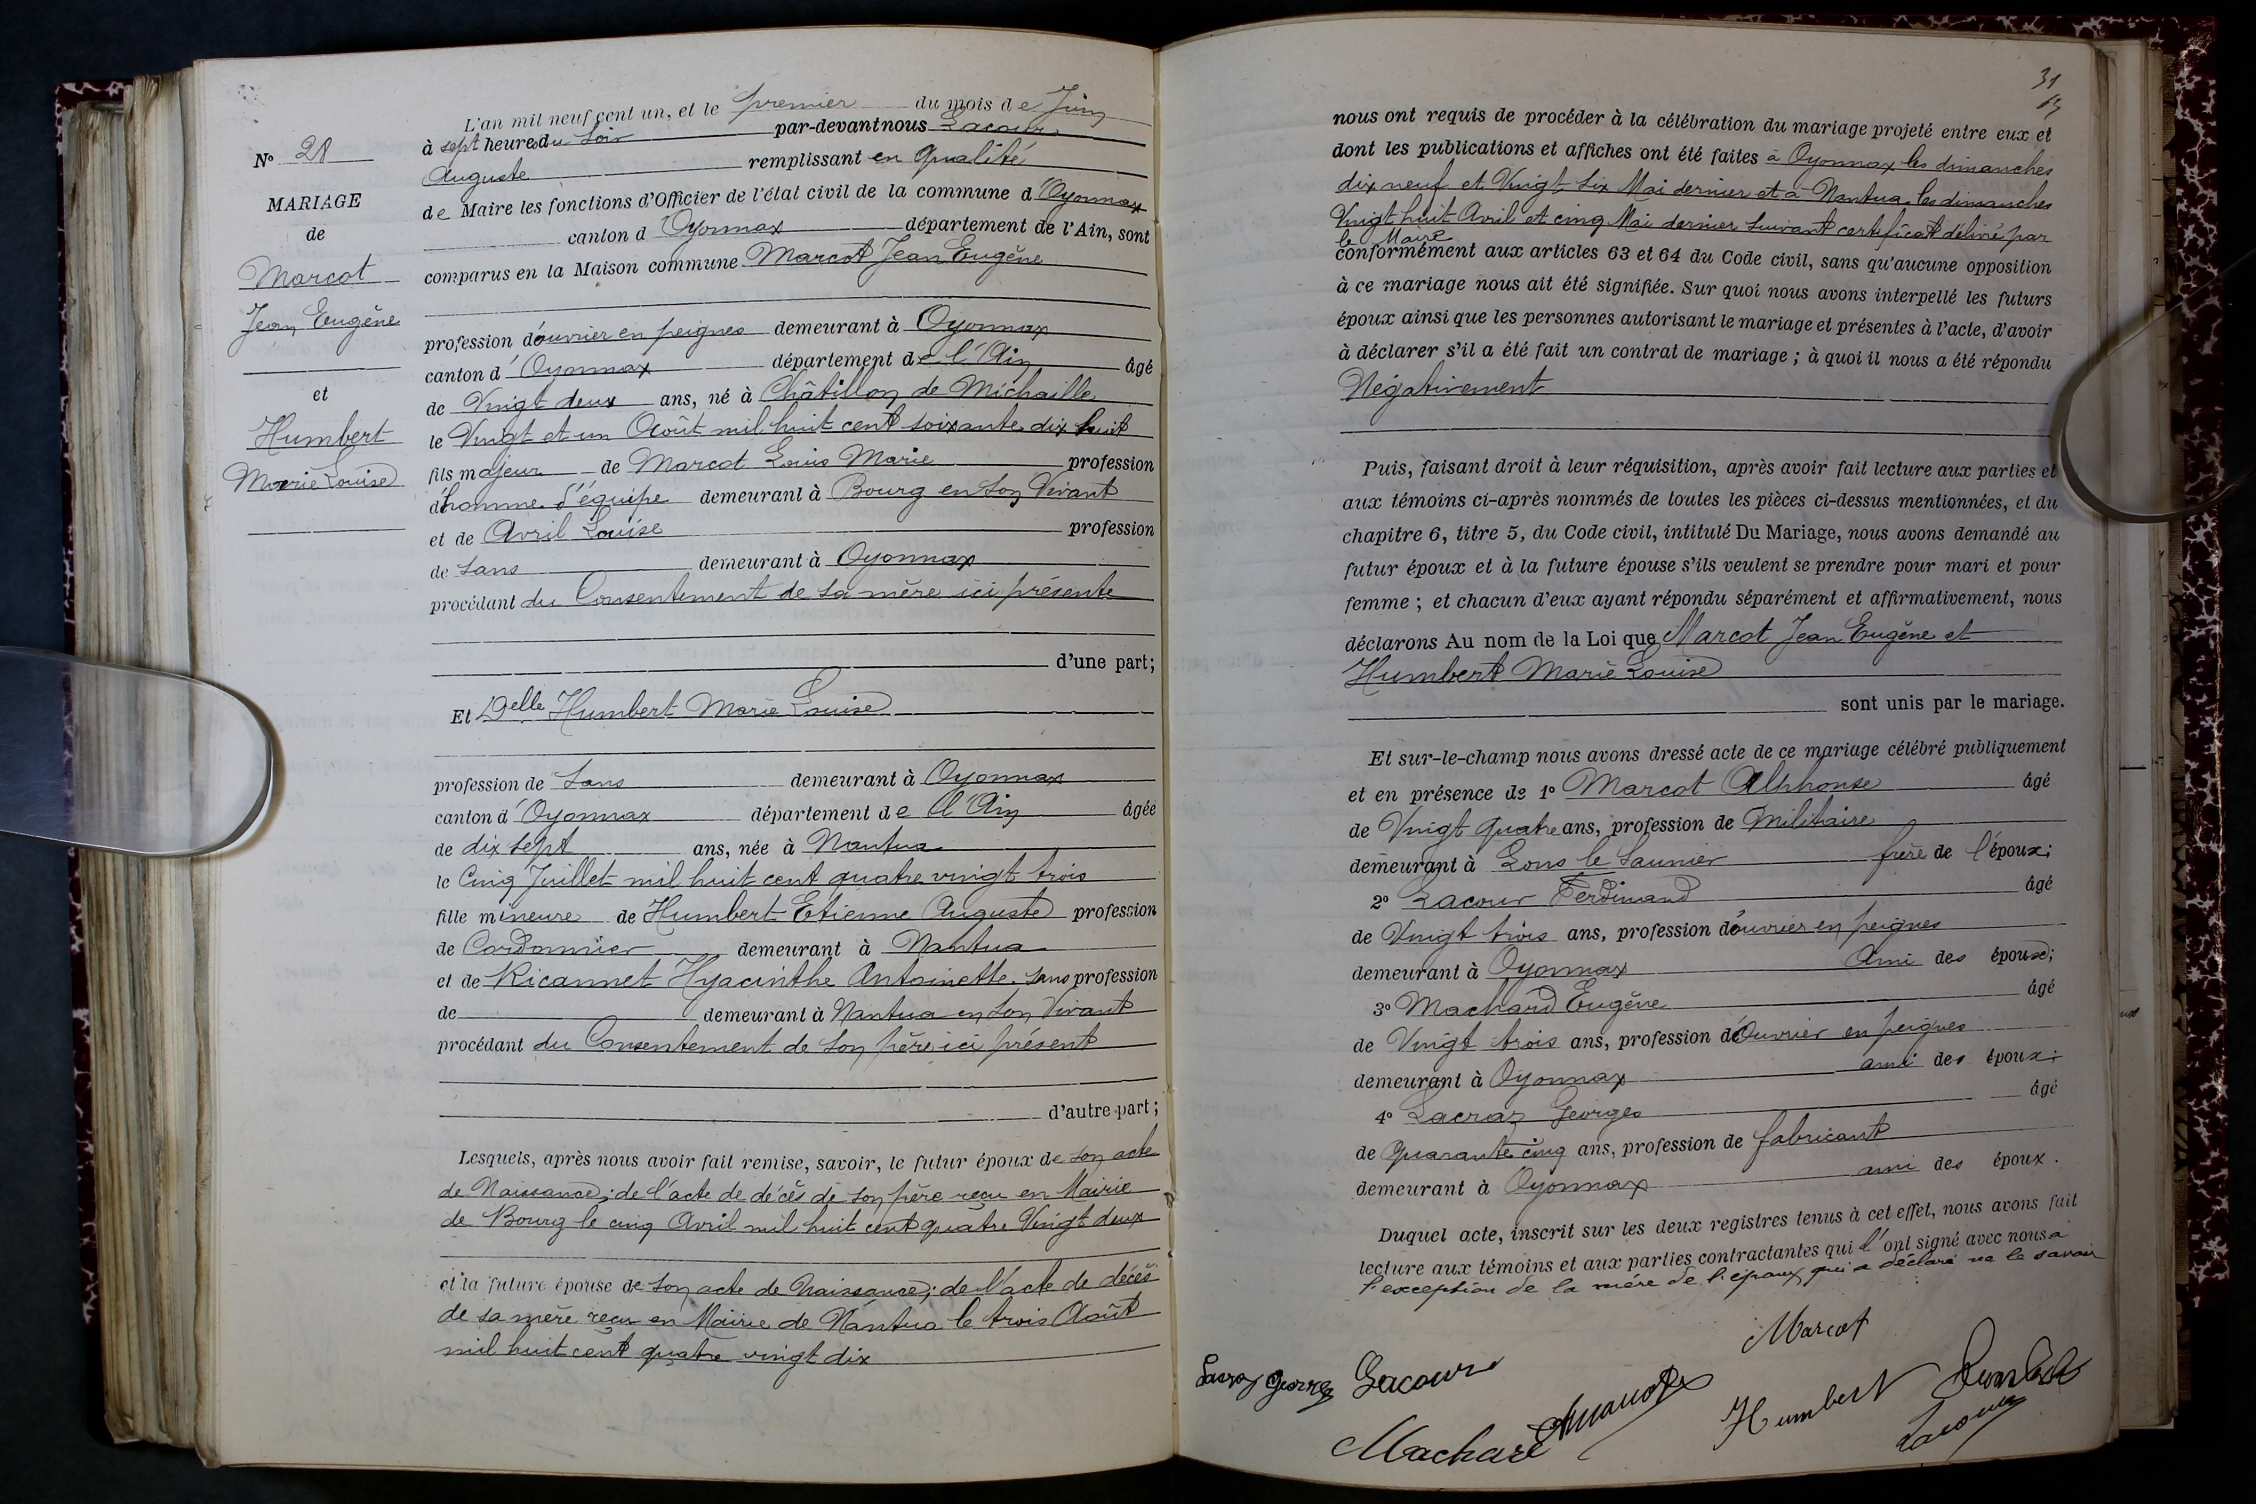 N° 28
MARIAGE
de
Marcot
Jean Eugène
et
Humbert
Marie Louise
L'an mil neuf cent un, et le premier du mois de Juin
à sept heures du soir par-devant nous Lacour
Auguste remplissant en qualité
de Maire les fonctions d'Officier de l'état civil de la commune d'Oyonnax
canton d'Oyonnax département de l'Ain, sont
comparus en la Maison commune Marcot Jean Eugène
profession d'ouvrier en peignes demeurant à Oyonnax
canton d'Oyonnax département de l'Ain âgé
de Vingt deux ans, né à Châtillon de Michaille
le Vingt et un Août mil huit cent soixante dix huit
fils majeur de Marcot Louis Marie profession
d'homme d'équipe demeurant à Bourg en son Vivant
et de Avril Louise profession
de sans demeurant à Oyonnax
procédant du Consentement de sa mère ici présente
d'une part;
Et Delle Humbert Marie Louise
profession de sans demeurant à Oyonnax
canton d'Oyonnax département de l'Ain âgée
de dix sept ans, née à Nantua
le Cinq Juillet mil huit cent quatre vingt trois
fille mineure de Humbert Etienne Auguste profession
de Cordonnier demeurant à Nantua
et de Ricannet Hyacinthe Antoinette sans profession
de demeurant à Nantua en son Vivant
procédant du Consentement de son père ici présent
d'autre part;
Lesquels, après nous avoir fait remise, savoir, le futur époux de son acte
de Naissance; de l'acte de décès de son père reçu en Mairie
de Bourg le cinq Avril mil huit cent quatre Vingt deux
et la future épouse de son acte de Naissance; de l'acte de décès
de sa mère reçu en Mairie de Nantua le trois Août
mil huit cent quatre vingt dix
31
nous ont requis de procéder à la célébration du mariage projeté entre eux et
dont les publications et affiches ont été faites à Oyonnax les dimanches
dix neuf et Vingt six Mai dernier et à Nantua les dimanches
Vingt huit Avril et cinq Mai dernier suivant certificat délivré par
le Maire
conformément aux articles 63 et 64 du Code civil, sans qu'aucune opposition
à ce mariage nous ait été signifiée. Sur quoi nous avons interpellé les futurs
époux ainsi que les personnes autorisant le mariage et présentes à l'acte, d'avoir
à déclarer s'il a été fait un contrat de mariage; à quoi il nous a été répondu
Négativement
Puis, faisant droit à leur réquisition, après avoir fait lecture aux parties et
aux témoins ci-après nommés de toutes les pièces ci-dessus mentionnées, et du
chapitre 6, titre 5, du Code civil, intitulé Du Mariage, nous avons demandé au
futur époux et à la future épouse s'ils veulent se prendre pour mari et pour
femme; et chacun d'eux ayant répondu séparément et affirmativement, nous
déclarons Au nom de la Loi que Marcot Jean Eugène et
Humbert Marie Louise
sont unis par le mariage.
Et sur-le-champ nous avons dressé acte de ce mariage célébré publiquement
et en présence de 1° Marcot Alphonse âgé
de Vingt quatre ans, profession de Militaire
demeurant à Lons le Saunier frère de l'époux;
2° Lacour Ferdinand âgé
de Vingt trois ans, profession d'ouvrier en peignes
demeurant à Oyonnax Ami des époux;
3° Machard Eugène âgé
de Vingt trois ans, profession d'Ouvrier en peignes
demeurant à Oyonnax ami des époux;
4° Lacraz Georges âgé
de quarante cinq ans, profession de fabricant
demeurant à Oyonnax ami des époux.
Duquel acte, inscrit sur les deux registres tenus à cet effet, nous avons fait
lecture aux témoins et aux parties contractantes qui l'ont signé avec nous à
l'exception de la mère de l'époux qui a déclaré ne le savoir
Marcot
Georges Lacour
Humbert
Machard
Lacour